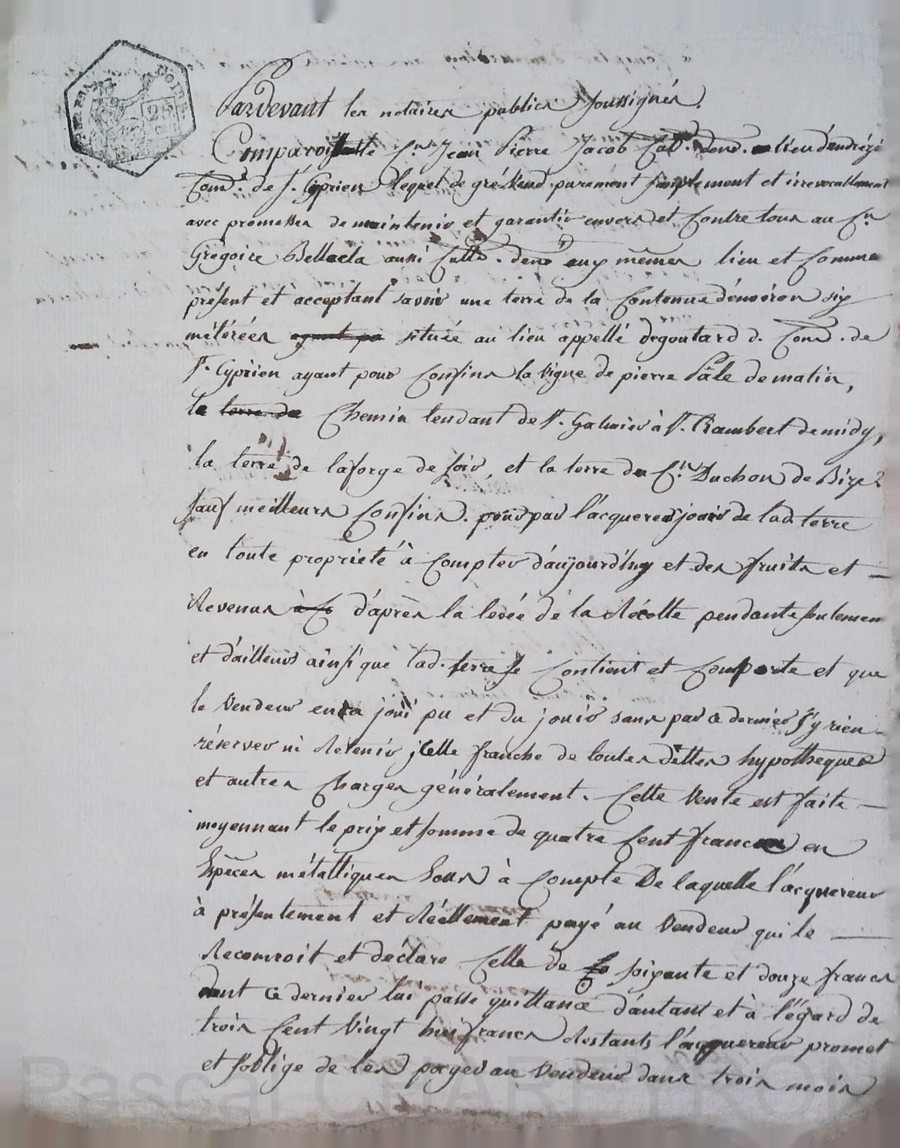 25
Pardevant les notaires publics soussignés.
Comparoit le Cn. Jean Pierre Jacob Cult. dem. au lieu d'andrézi
Comd. de St. Cyprien lequel de gré vend purement simplement et irrevocablement
avec promesses de maintenir et garantir envers et Contre tous au Cn
Grégoire aussi Cultr. demt aux mêmes lieu et Commune
présent et acceptant savoir une terre de la Contenue d'environ six
métérées située au lieu appellé degoutard d. Comd. de
St. Cyprien ayant pour Confins la vigne de pierre Pâle de matin,
le terre de Chemin tendant de St. Galmier à St. Rambert de midy,
la terre de laforge de soir, et la terre du Cn. Duchon de Bize
sauf meilleurs Confins. pour par l'acquereur jouir de lad. terre
en toute propriété à Compter d'aujourd'huy et des fruits et
Revenus d'après la levée de la Récolte pendante seulement
et d'ailleurs ainsi que lad. terre se Contient et Comporte et que
le Vendeur en a joui pu et du jouir sans par ce dernier s'y rien
réserver ni Retenir jcelle franche de toutes dettes hypotheques
et autres Charges généralement. Cette Vente est faite
moyennant le prix et somme de quatre Cent francs en
Espèces métalliques Sour à Compte De laquelle l'acquereur
à présentement et Réellement payé au Vendeur qui le
Reconnoit et déclare Celle de soixante et douze francs
dont ce dernier lui passe quittance d'autant et à l'égard de
trois Cent Vingt huit francs Restants l'acquereur promet
et s'oblige de les payer au Vendeur dans trois mois
Pascal